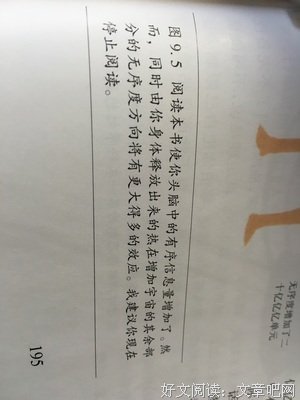 无序度增加了二
十亿亿亿单元
图9.5 阅读本书使你头脑中的有序信息量增加了。然
而，同时由你身体释放出来的热在增加宇宙的其余部
分的无序度方向将有更大得多的效应。我建议你现在
停止阅读。
195
好文阅读：文章吧网